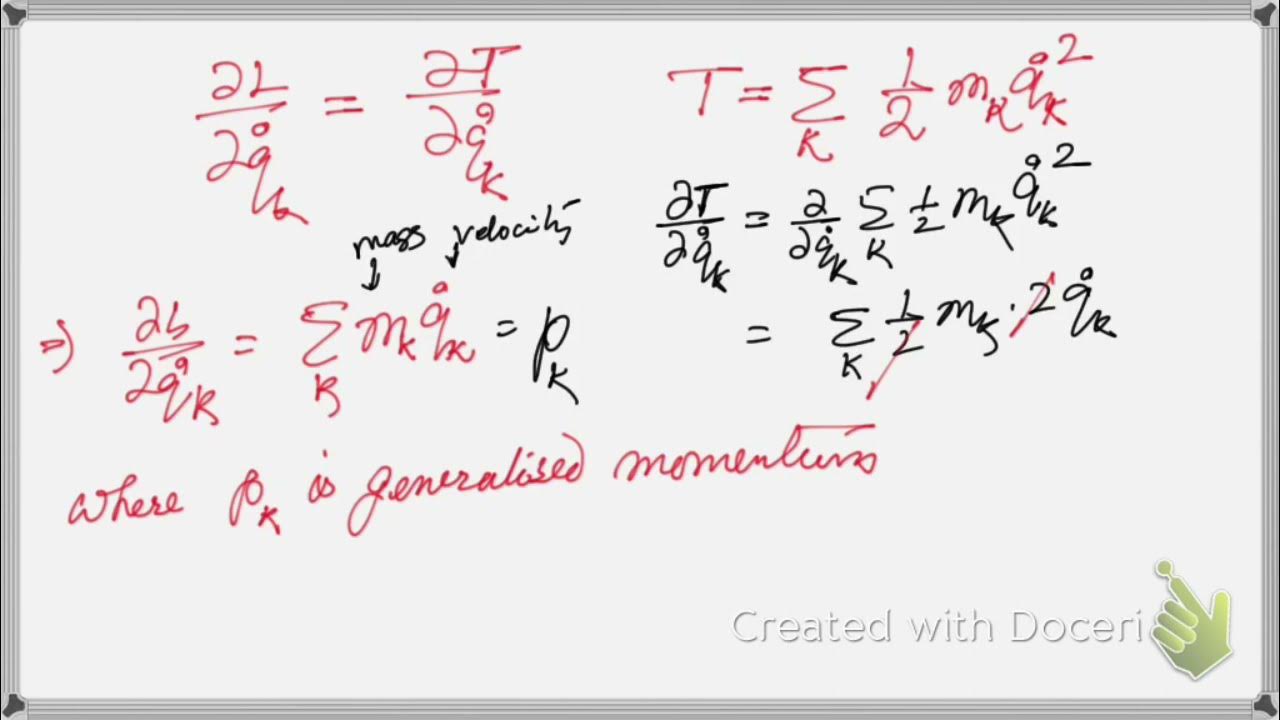 ∂L/∂q̇_k = ∂T/∂q̇_k
T = Σ_k 1/2 m_k q̇_k²
∂T/∂q̇_k = ∂/∂q̇_k Σ_k 1/2 m_k q̇_k²
mass velocity
⇒ ∂L/∂q̇_k = Σ_k m_k q̇_k = p_k
= Σ_k 1/2 m_k · 2 q̇_k
where p_k is generalised momentum
Created with Doceri